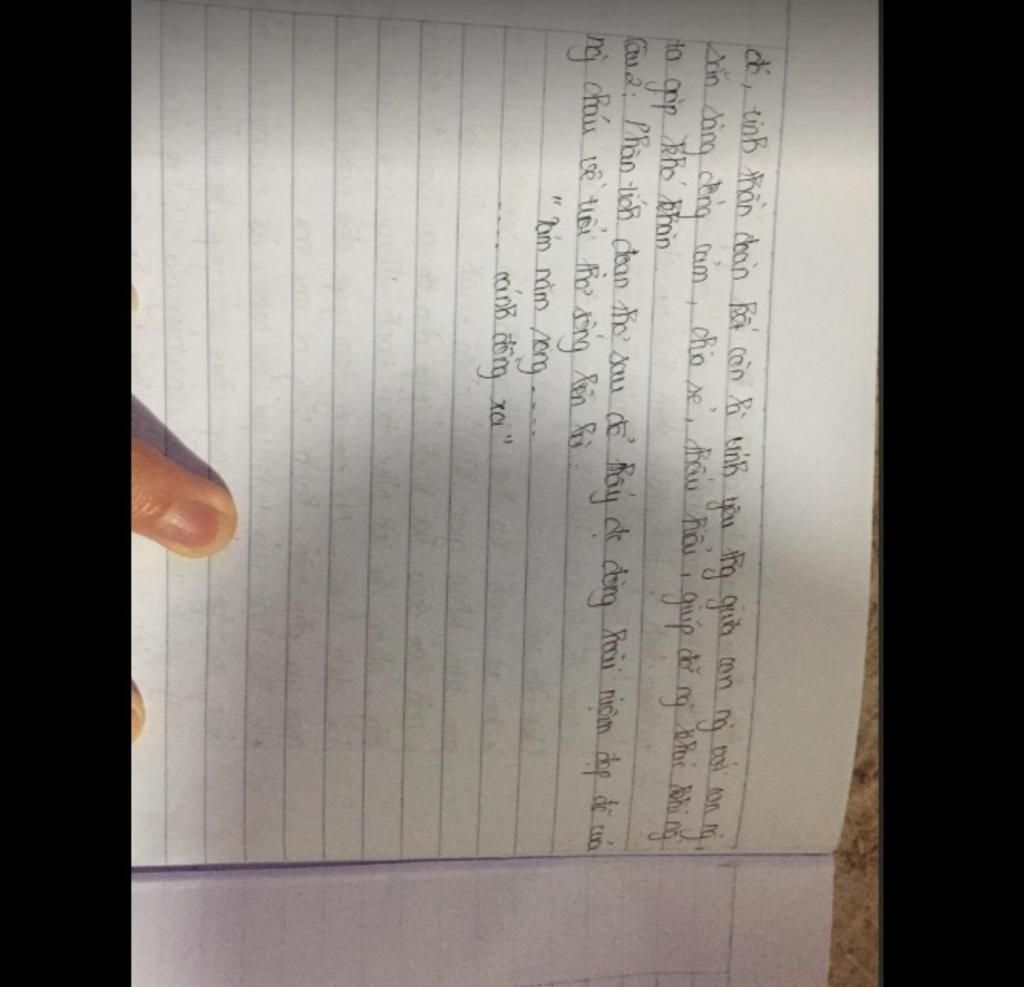 đó, tinh thần đoàn kết còn là tình yêu thg giữa con ng với con ng,
sẵn sàng đồng cảm, chia sẻ, thấu hiểu, giúp đỡ ng khác khi ng
ta gặp khó khăn
Câu 2: Phân tích đoạn thơ sau để thấy đc dòng hoài niệm đẹp đẽ của
ng cháu về tuổi thơ sống bên bà.
"Tám năm ròng....
.... cánh đồng xa"